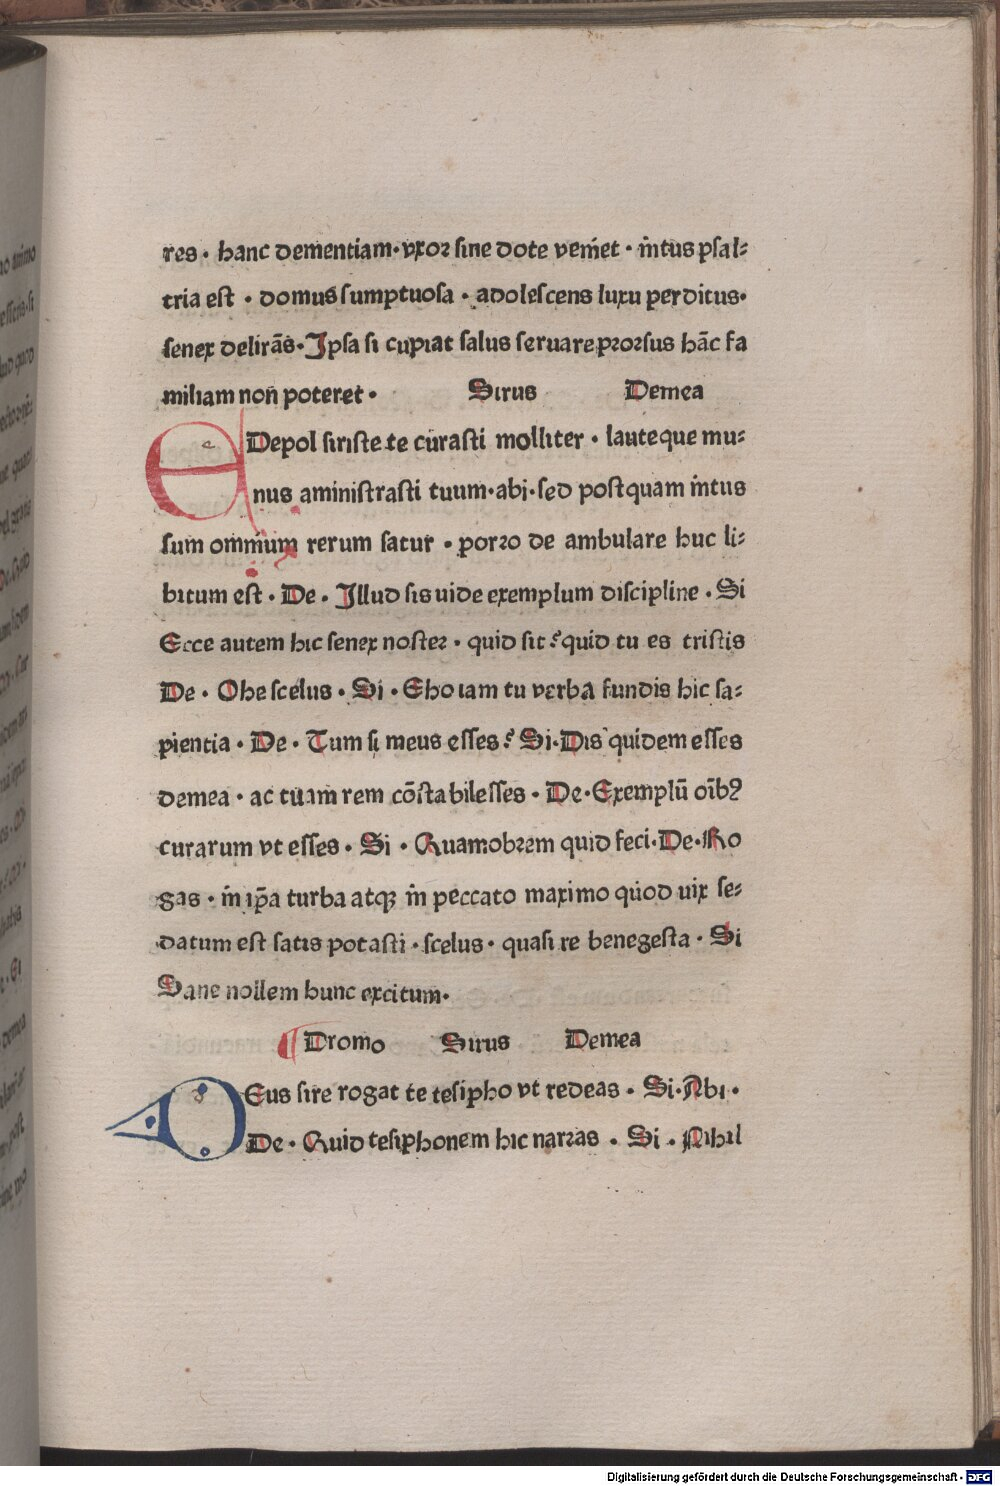 res · hanc dementiam · vxor sine dote veniet · intus psal-
tria est · domus sumptuosa · adolescens luxu perditus ·
senex delirans · Ipsa si cupiat salus seruare prorsus hāc fa
miliam non poteret · Sirus Demea
EDepol siriste te curasti molliter · lauteque mu-
nus aministrasti tuum · abi · sed postquam intus
sum omnium rerum satur · porro de ambulare huc li-
bitum est · De · Illud sis uide exemplum discipline · Si
Ecce autem hic senex noster · quid sit ? quid tu es tristis
De · Ohe scelus · Si · Eho iam tu verba fundis hic sa-
pientia · De · Tum si meus esses ? Si · Dis quidem esses
demea · ac tuam rem cōstabilesses · De · Exemplū oībꝰ
curarum vt esses · Si · Quamobrem quid feci · De · Ro
gas · in ip̄a turba atqꝫ in peccato maximo quod uix se-
datum est satis potasti · scelus · quasi re benegesta · Si
Sane nollem hunc excitum ·
¶ Dromo Sirus Demea
OEus sire rogat te tesipho vt redeas · Si · Abi ·
De · Quid tesiphonem hic narras · Si · Nihil
Digitalisierung gefördert durch die Deutsche Forschungsgemeinschaft · DFG